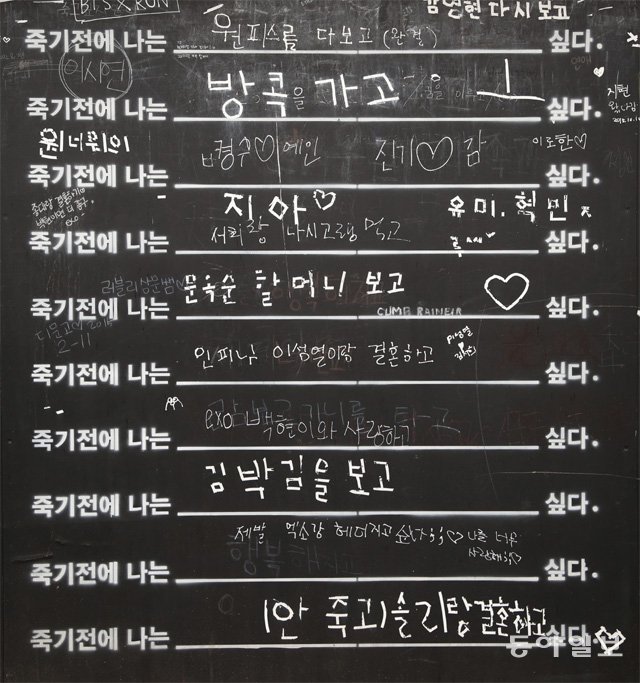 BTS X KON
김영현 다시 보고
죽기전에 나는 원피스를 다보고 (완결) 싶다.
이시연
죽기전에 나는 방콕을 가고 싶다.
지현
원너뮈의
죽기전에 나는 경수♡예인 진기♡감 싶다.
이로한♡
지아♡ 유미.혁민
죽기전에 나는 서희랑 나시고랭 먹고 싶다.
러블리상운쌤♡
죽기전에 나는 문옥순 할머니 보고 ♡ 싶다.
CUMB RAINEIR
2-11
죽기전에 나는 인피니 이성열이랑 결혼하고 싶다.
죽기전에 나는 exo 백현이와 사랑하고 싶다.
죽기전에 나는 김박김을 보고 싶다.
제발 엑소랑 헤어지고 ♡ 나를 너무
죽기전에 나는 행복해지고 싶다.
죽기전에 나는 (안 죽고) 솔리랑결혼하고 싶다.
동아일보